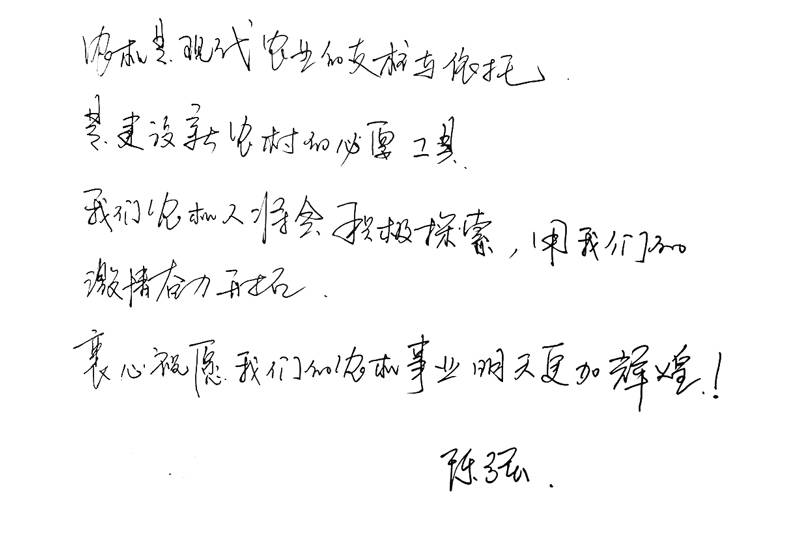 农机是现代农业的支柱与依托.
是建设新农村的必要工具.
我们农机人将会积极探索，用我们的
激情奋力开拓.
衷心祝愿我们的农机事业明天更加辉煌！
陈强.